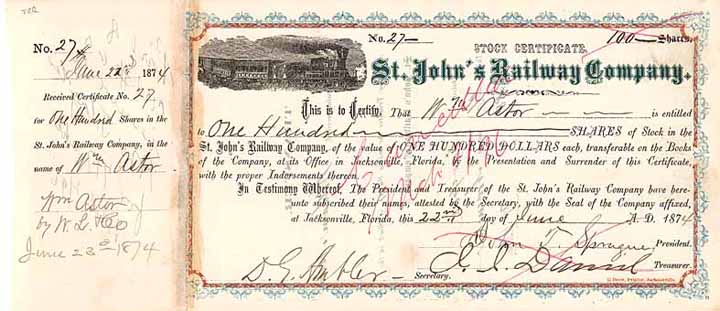 No. 27
June 22d 1874
Received Certificate No. 27
for One Hundred Shares in the
St. John's Railway Company, in the
name of Wm Astor
Wm Astor
by W. L.
June 23d 1874
No. 27
100 Shares.
STOCK CERTIFICATE.
St. John's Railway Company.
This is to Certify, That Wm Astor is entitled
to One Hundred SHARES of Stock in the
St. John's Railway Company, of the value of ONE HUNDRED DOLLARS each, transferable on the Books
of the Company, at its Office in Jacksonville, Florida, by the Presentation and Surrender of this Certificate,
with the proper Indorsements thereon.
In Testimony Whereof, The President and Treasurer of the St. John's Railway Company have here-
unto subscribed their names, attested by the Secretary, with the Seal of the Company affixed,
at Jacksonville, Florida, this 22nd day of June A. D. 1874
John T. Sprague President.
D. G. Ambler Secretary.
Daniel Treasurer.
Cancelled